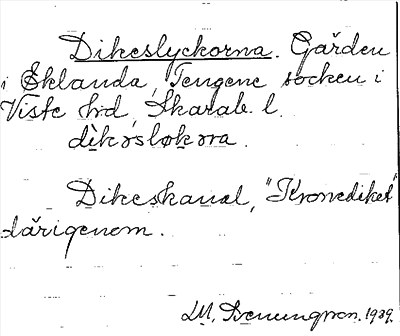 Dikeslyckorna. Gården
i Eklanda, Tengene socken i
Viste hrd, Skarab. l.
dìkəsløkərna.
Dikeskanal, "Kronediket"
därigenom.
1929.